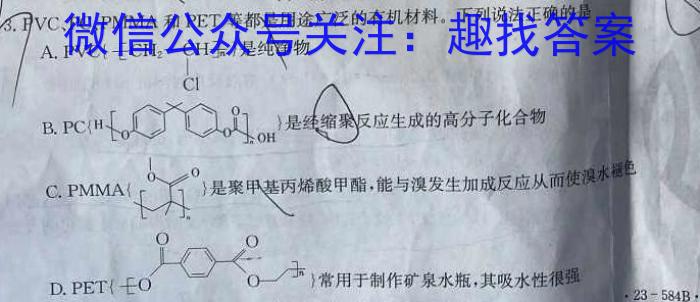 3. PVC、PC、PMMA 和 PET 等都是用途广泛的有机材料。下列说法正确的是
微信公众号关注：趣找答案
A. PVC{ CH₂ CH }是纯净物
Cl
B. PC{H O O O n OH}是经缩聚反应生成的高分子化合物
C. PMMA{ O O n }是聚甲基丙烯酸甲酯,能与溴发生加成反应从而使溴水褪色
D. PET{ O O O O n }常用于制作矿泉水瓶,其吸水性很强
·23-584B·